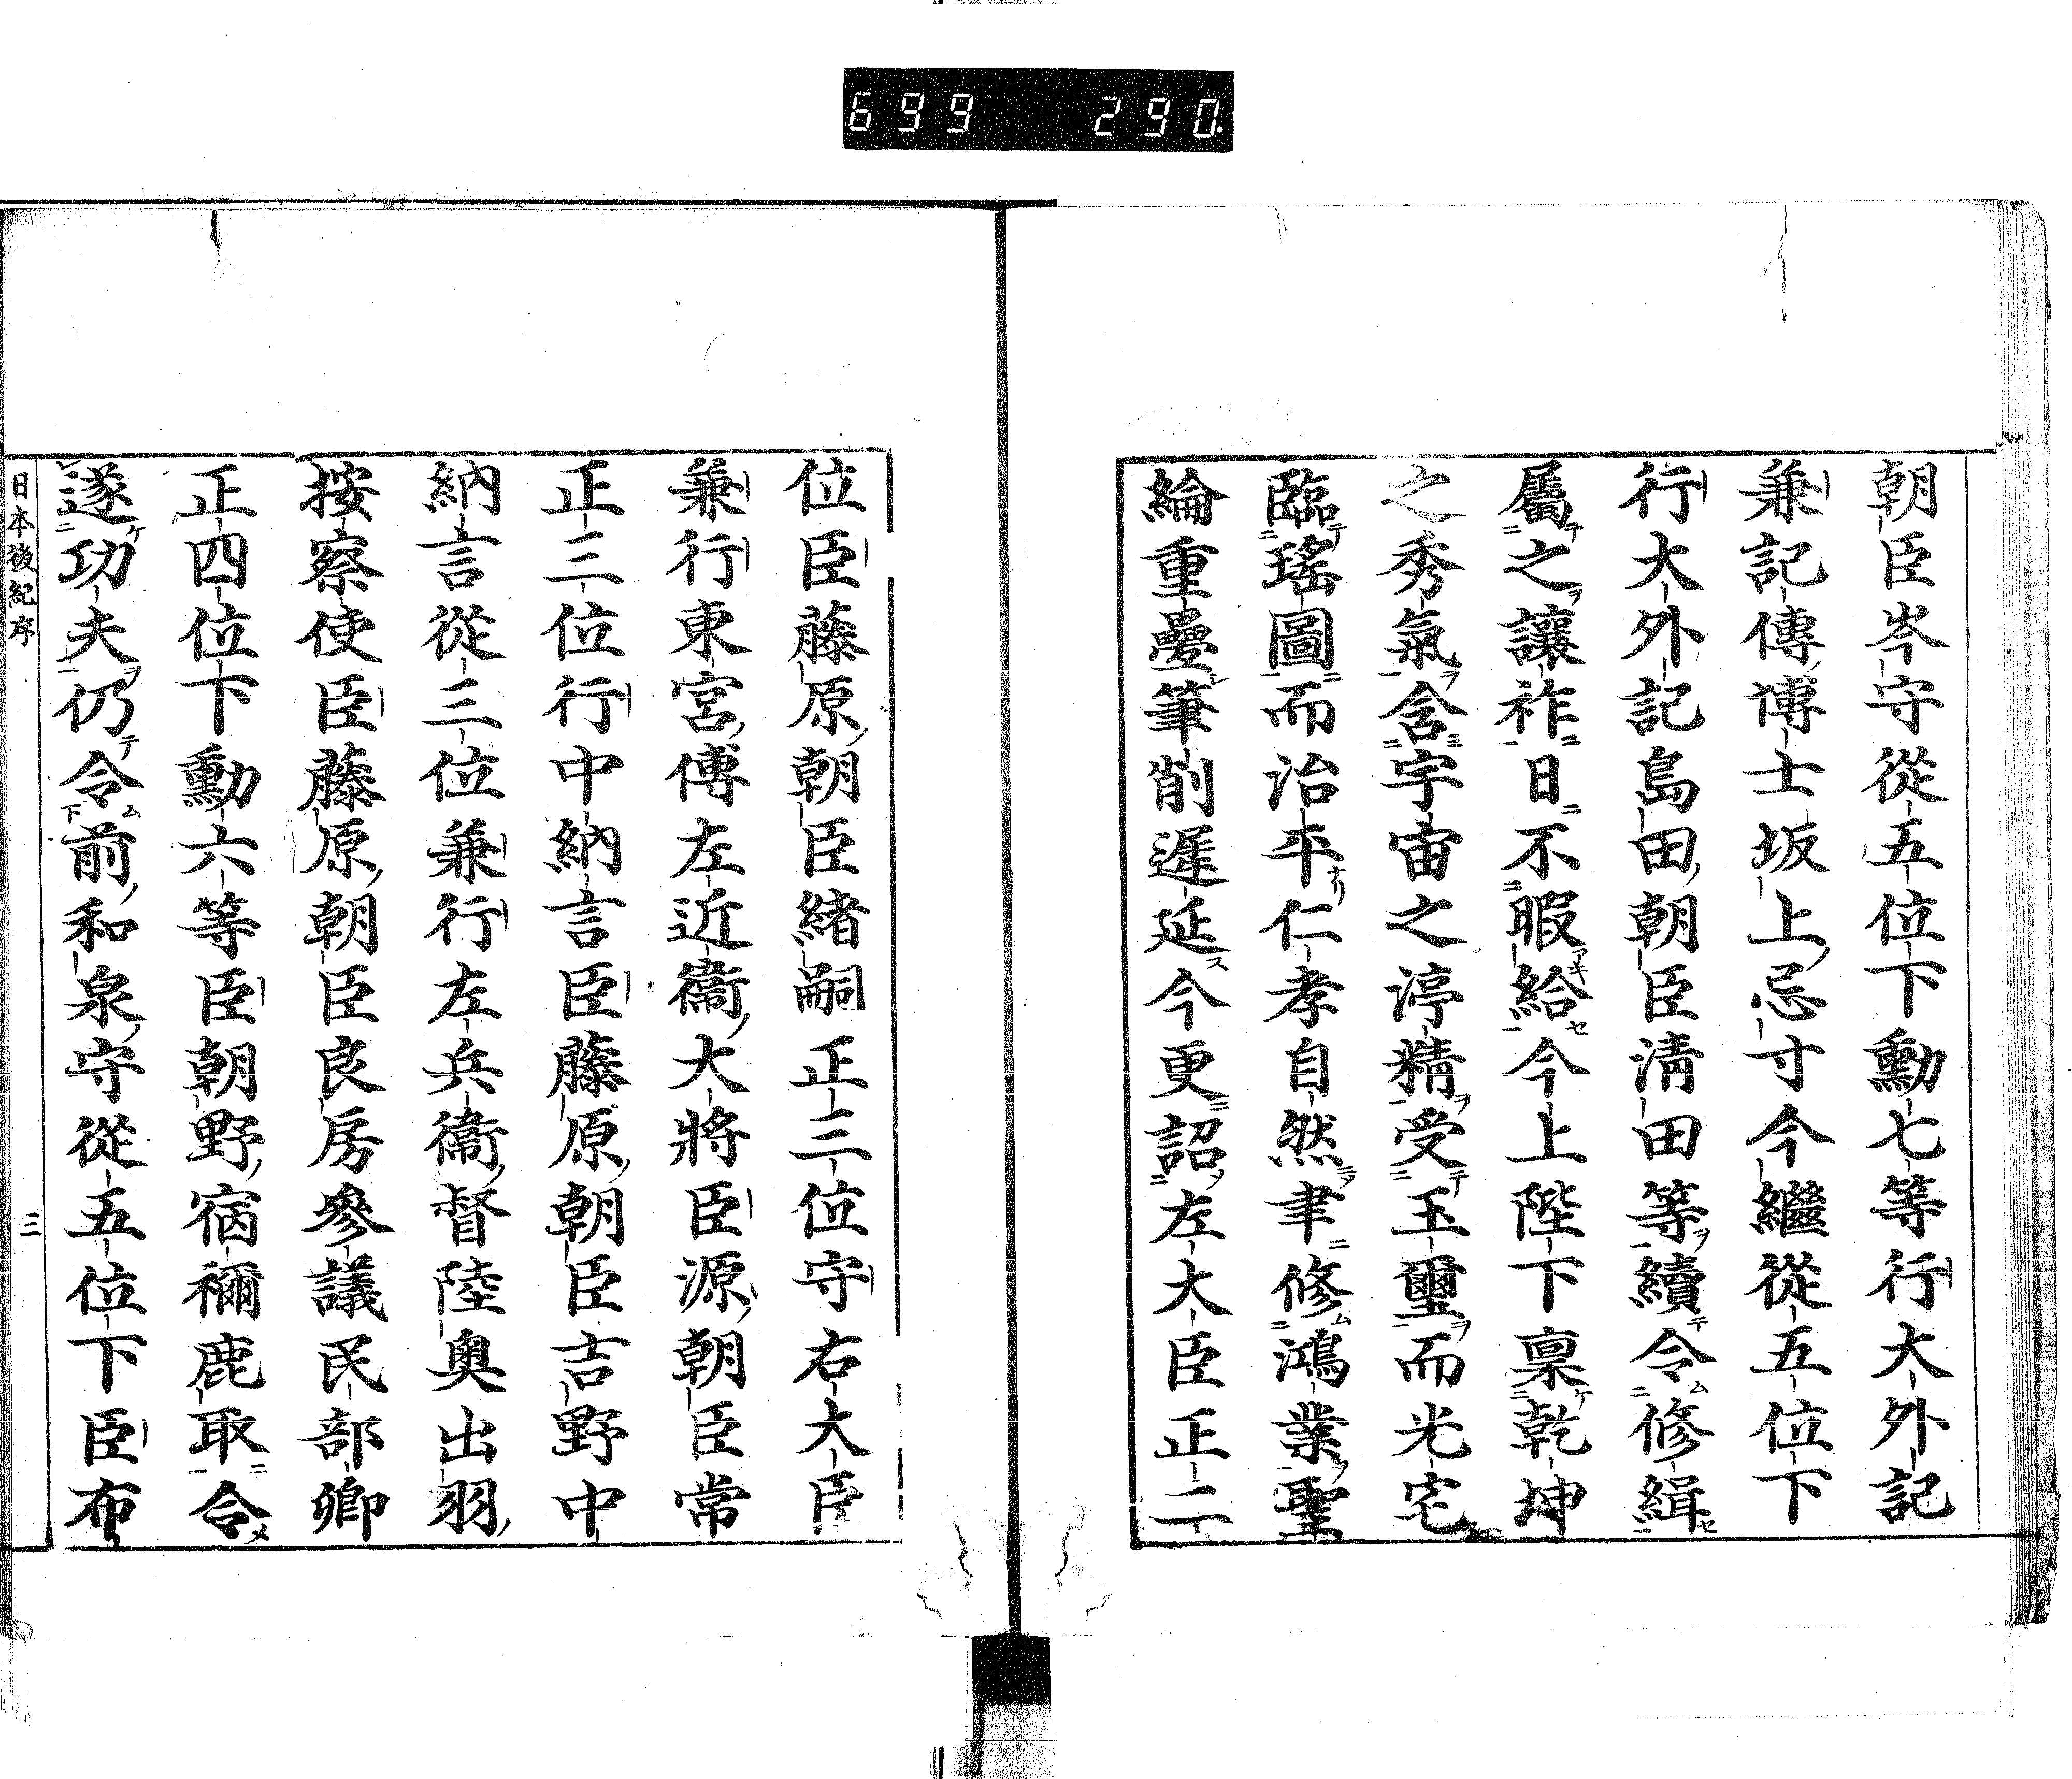 699 290
朝臣岑守從五位下勳七等行大外記
兼記傳博士坂上忌寸今繼從五位下
行大外記島田朝臣淸田等續令修緝
屬之讓祚日不暇給今上陛下稟乾坤
之秀氣含宇宙之渟精受玉璽而光宅
臨瑤圖而治平仁孝自然聿修鴻業聖
綸重疊筆削遲延今更詔左大臣正二
位臣藤原朝臣緖嗣正三位守右大臣
兼行東宮傅左近衞大將臣源朝臣常
正三位行中納言臣藤原朝臣吉野中
納言從三位兼行左兵衞督陸奧出羽
按察使臣藤原朝臣良房參議民部卿
正四位下勳六等臣朝野宿禰鹿取令
遂功夫仍令前和泉守從五位下臣布
日本後紀序 三